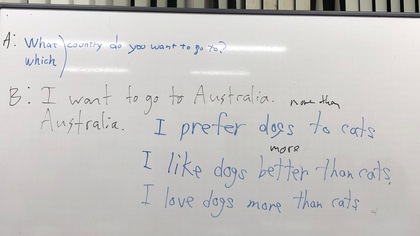 A: What country do you want to go to?
which
B: I want to go to Australia.
Australia.
more than
I prefer dogs to cats
more
I like dogs better than cats.
I love dogs more than cats